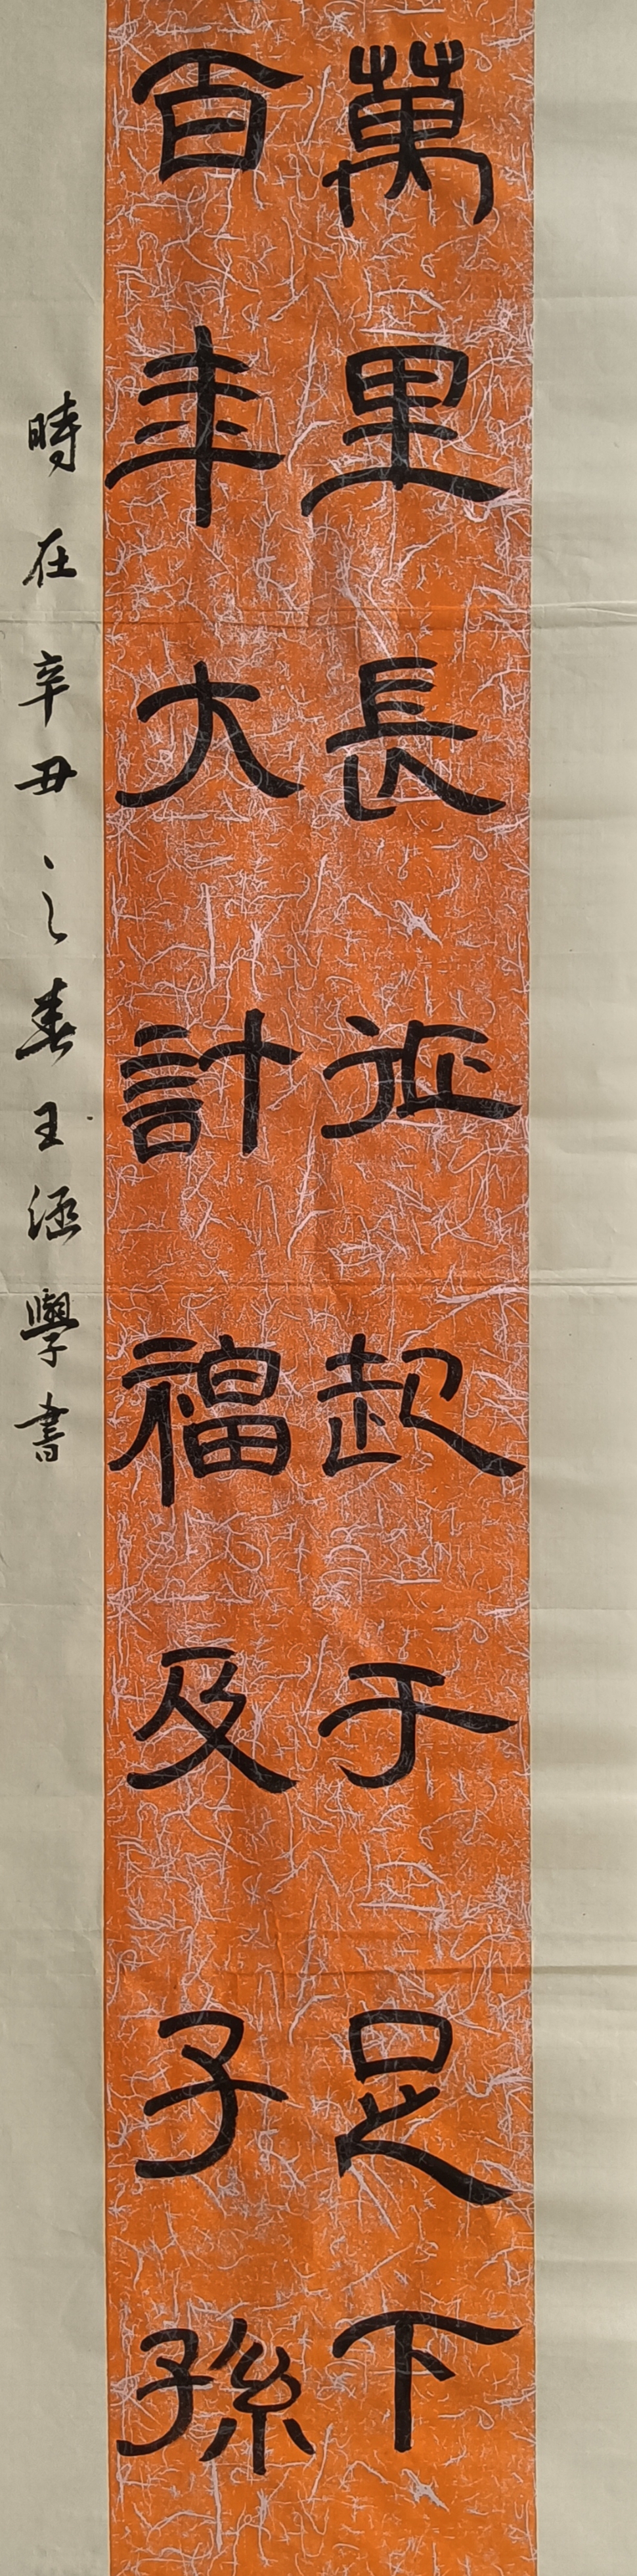 萬里長征起于足下
百年大計福及子孫
時在辛丑之春王涵學書